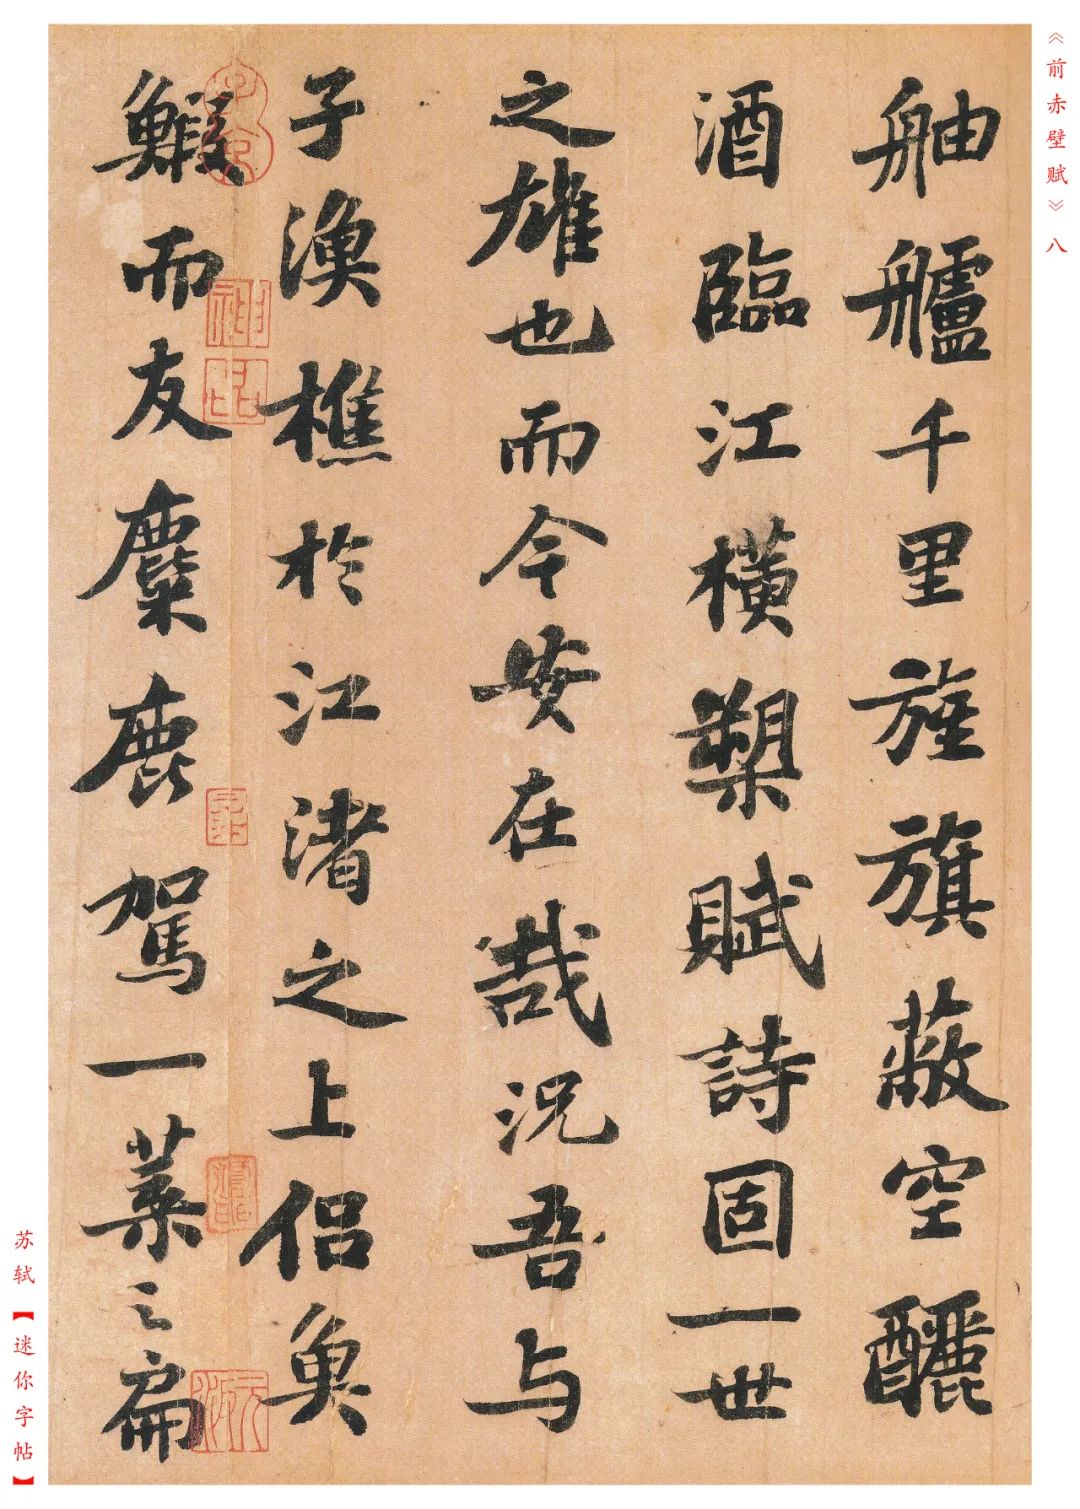 《前赤壁赋》八
舳艫千里旌旗蔽空釃
酒臨江橫槊賦詩固一世
之雄也而今安在哉況吾与
子漁樵於江渚之上侣魚
鰕而友麋鹿駕一葉之扁
苏轼【迷你字帖】